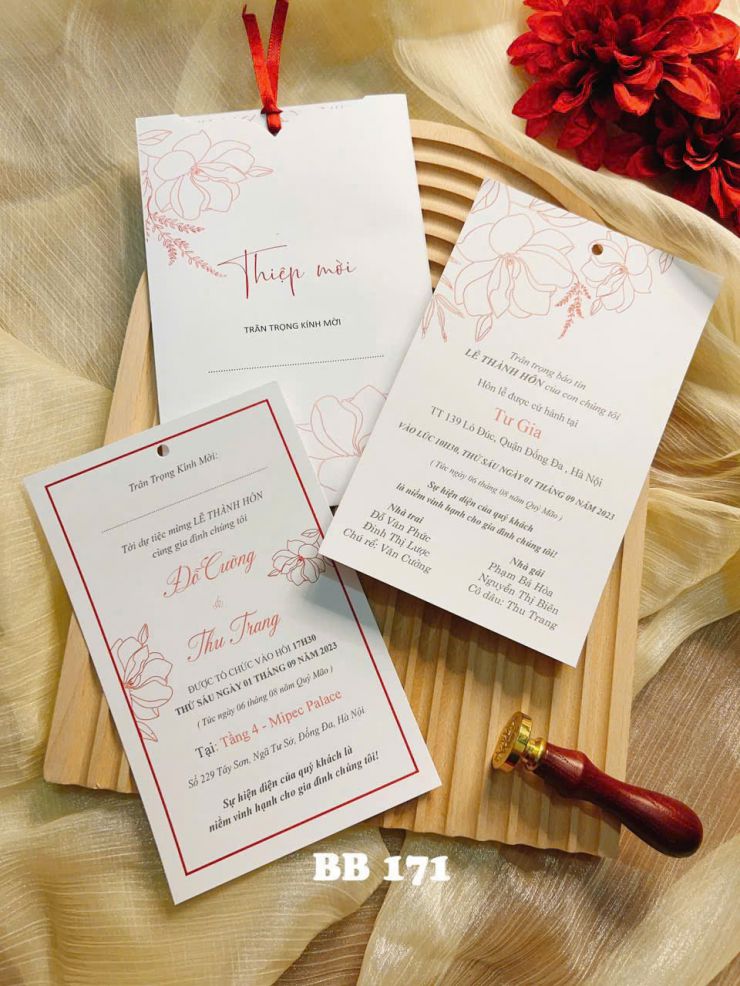 Thiệp mời
TRÂN TRỌNG KÍNH MỜI
Trân trọng báo tin
LỄ THÀNH HÔN của con chúng tôi
Hôn lễ được cử hành tại
Tư Gia
TT 139 Lò Đúc, Quận Đống Đa , Hà Nội
VÀO LÚC 10H30, THỨ SÁU NGÀY 01 THÁNG 09 NĂM 2023
( Tức ngày 06 tháng 08 năm Quý Mão )
Sự hiện diện của quý khách
là niềm vinh hạnh cho gia đình chúng tôi!
Nhà trai
Đỗ Văn Phúc
Đinh Thị Lược
Chú rể: Văn Cường
Nhà gái
Phạm Bá Hòa
Nguyễn Thị Biên
Cô dâu: Thu Trang
Trân Trọng Kính Mời:
Tới dự tiệc mừng LỄ THÀNH HÔN
cùng gia đình chúng tôi
Đỗ Cường
&
Thu Trang
ĐƯỢC TỔ CHỨC VÀO HỒI 17H30
THỨ SÁU NGÀY 01 THÁNG 09 NĂM 2023
( Tức ngày 06 tháng 08 năm Quý Mão )
Tại: Tầng 4 - Mipec Palace
Số 229 Tây Sơn, Ngã Tư Sở, Đống Đa, Hà Nội
Sự hiện diện của quý khách là
niềm vinh hạnh cho gia đình chúng tôi!
BB 171